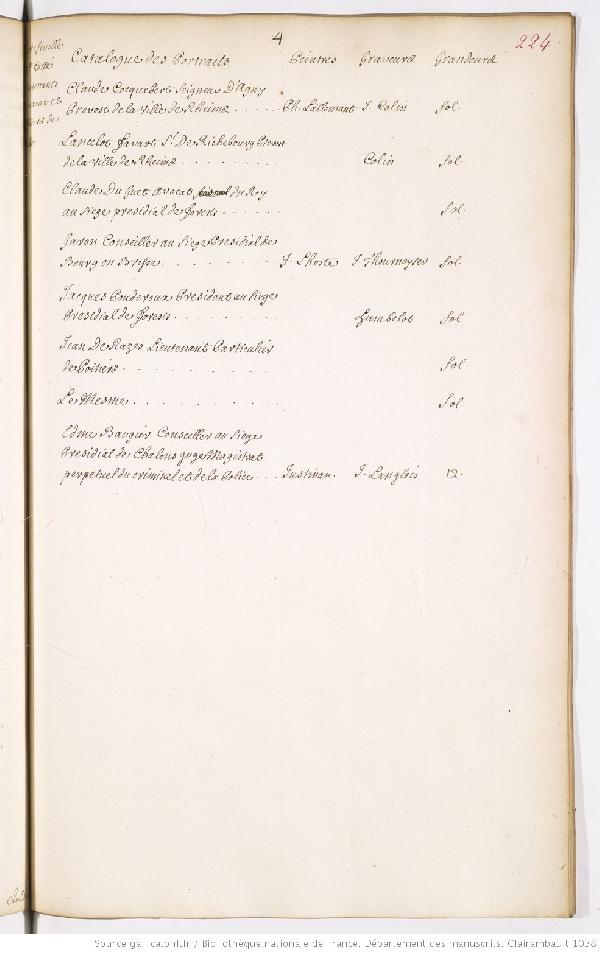 4
224
Catalogue des Portraits Peintres Graveurs Grandeurs
Claude Cocquebert Seigneur D'Agny
Prevost de la Ville de Rheims . . . . . Ph. Lallemant J. Colin fol.
Lancelot Favart Sr. De Richebourg Prevost
de la ville de Rheims . . . . . . . . . Colin fol.
Claude Du Guet avocat du Roy
au Siege presidial de Forests . . . . . fol.
Gavon Conseiller au Siege Presidial de
Bourg en Bresse . . . . . . . . . J. L'hoste J. Thourneyser fol.
Jacques Ponderoux President au Siege
Presidial de Forests . . . . . . . . . Humbelot fol
Jean De Razes Lieutenant Particulier
de Poitiers . . . . . . . . . . . fol
Le Mesme . . . . . . . . . . fol
Edme Baugier Conseiller au Siege
Presidial de Chalons juge Magistrat
perpetuel du criminel et de la Police . . . Justinan. J. Langlois 12.
Source gallica.bnf.fr / Bibliothèque nationale de France. Département des manuscrits. Clairambault 1038